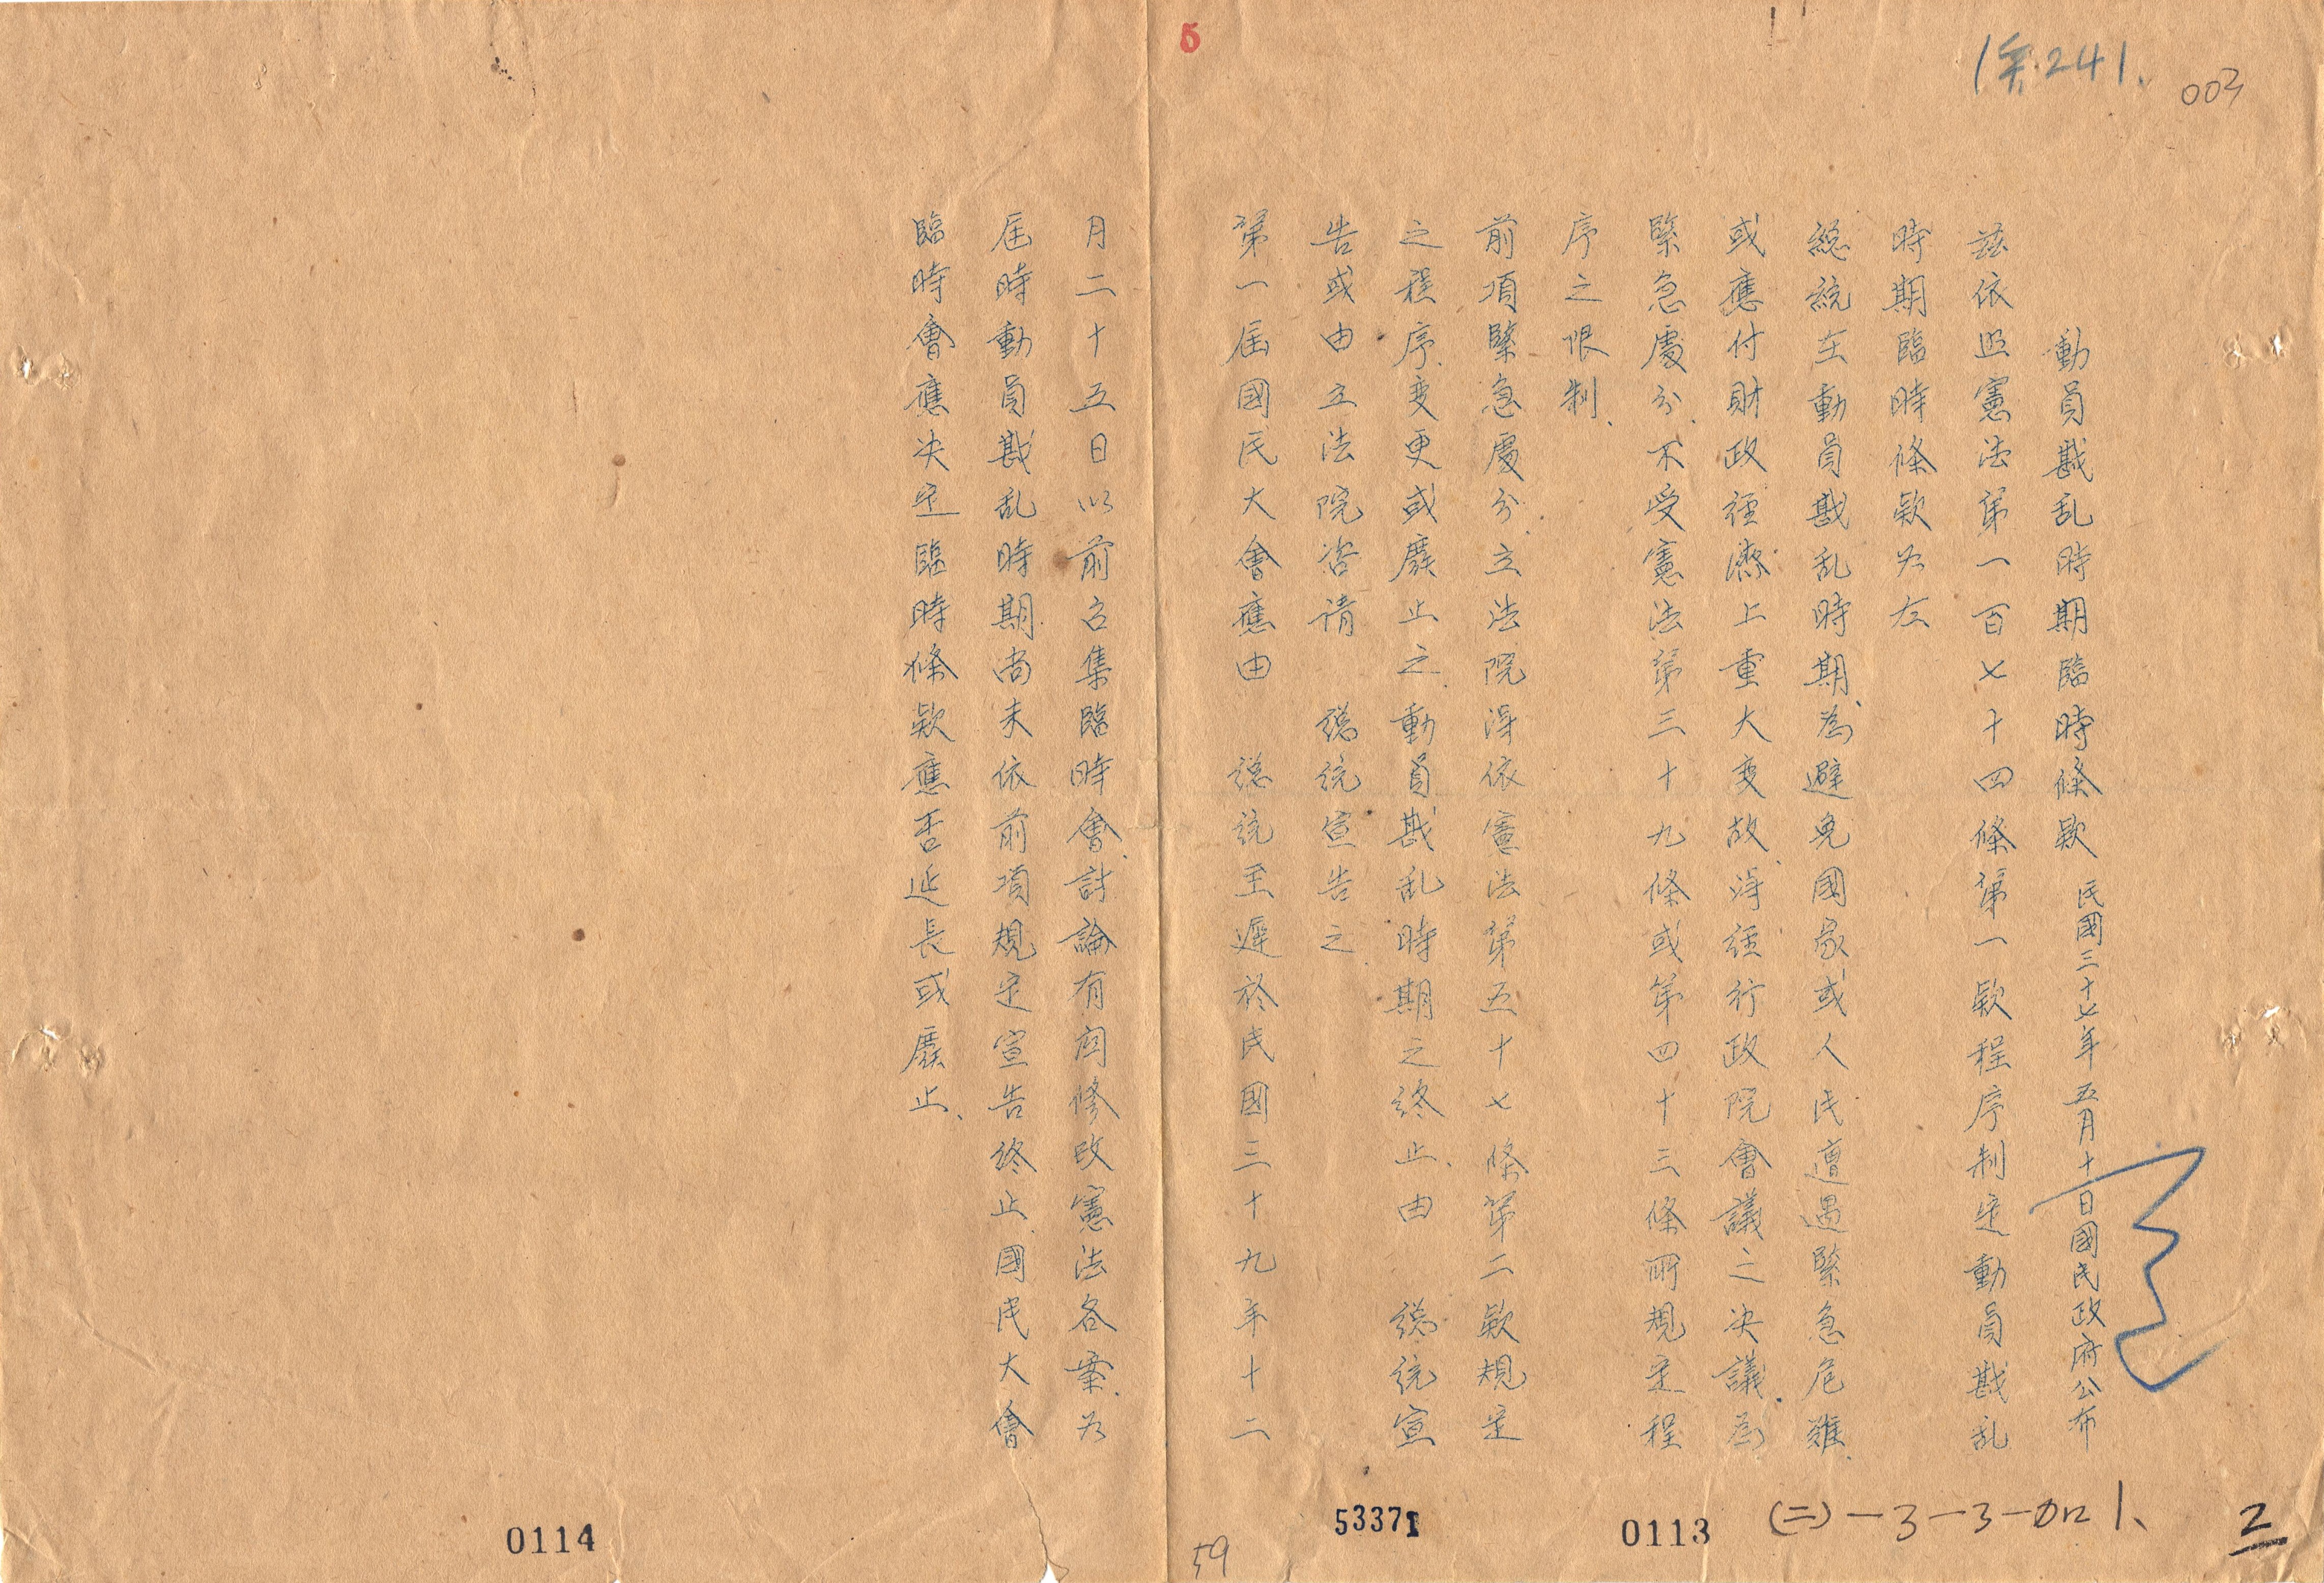 5
傢241、
003
動員戡乱時期臨時條款 民國三十七年五月十日國民政府公布
茲依照憲法第一百七十四條第一款程序制定動員戡乱
時期臨時條款如左
總統在動員戡乱時期、為避免國家或人民遭遇緊急危難、
或應付財政經濟上重大变故、得經行政院會議之决議、為
緊急處分、不受憲法第三十九條或第四十三條所規定程
序之限制、
前項緊急處分、立法院得依憲法第五十七條第二款規定
之程序、变更或廢止之、動員戡乱時期之終止、由 總統宣
告或由立法院咨请 總統宣告之、
第一屆國民大會應由 總統至遲於民國三十九年十二
月二十五日以前召集臨時會、討論有関修改憲法各案、如
屆時動員戡乱時期、尚未依前項規定宣告終止、國民大會
臨時會應决定臨時條款應否延長或廢止、
0114
59
53371
0113
(二)-3-3-加1、
2